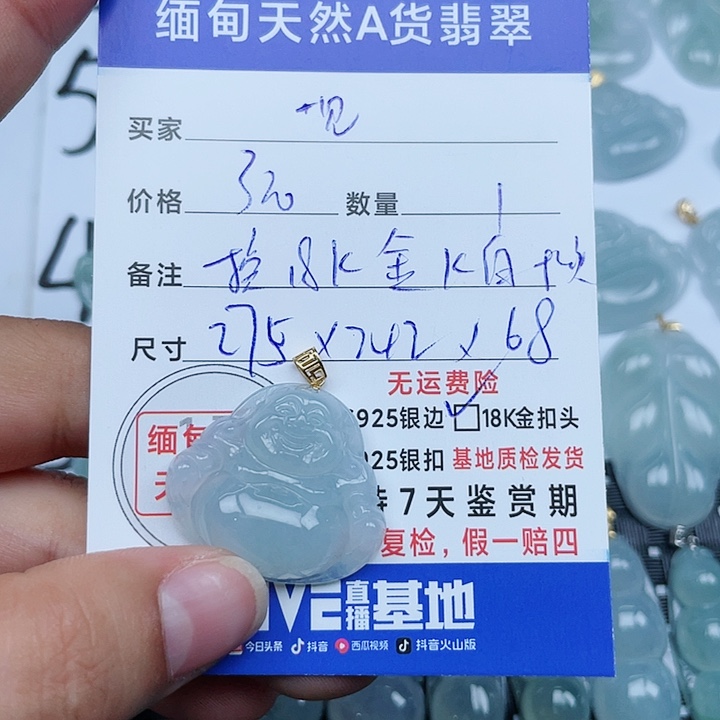 缅甸天然A货翡翠
5
买家
价格 320 数量 1
4
备注 18K金 K白
尺寸 275×242×68
无运费险
S925银边 18K金扣头
925银扣 基地质检发货
缅甸
天
持7天鉴赏期
复检，假一赔四
LIVE直播基地
今日头条 抖音 西瓜视频 抖音火山版